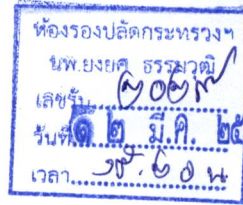 ห้องรองปลัดกระทรวงฯ
นพ.ยงยศ ธรรมวุฒิ
เลขรับ
วันที่ ๑ ๒ มี.ค. ๒๕
เวลา ๒๐ น